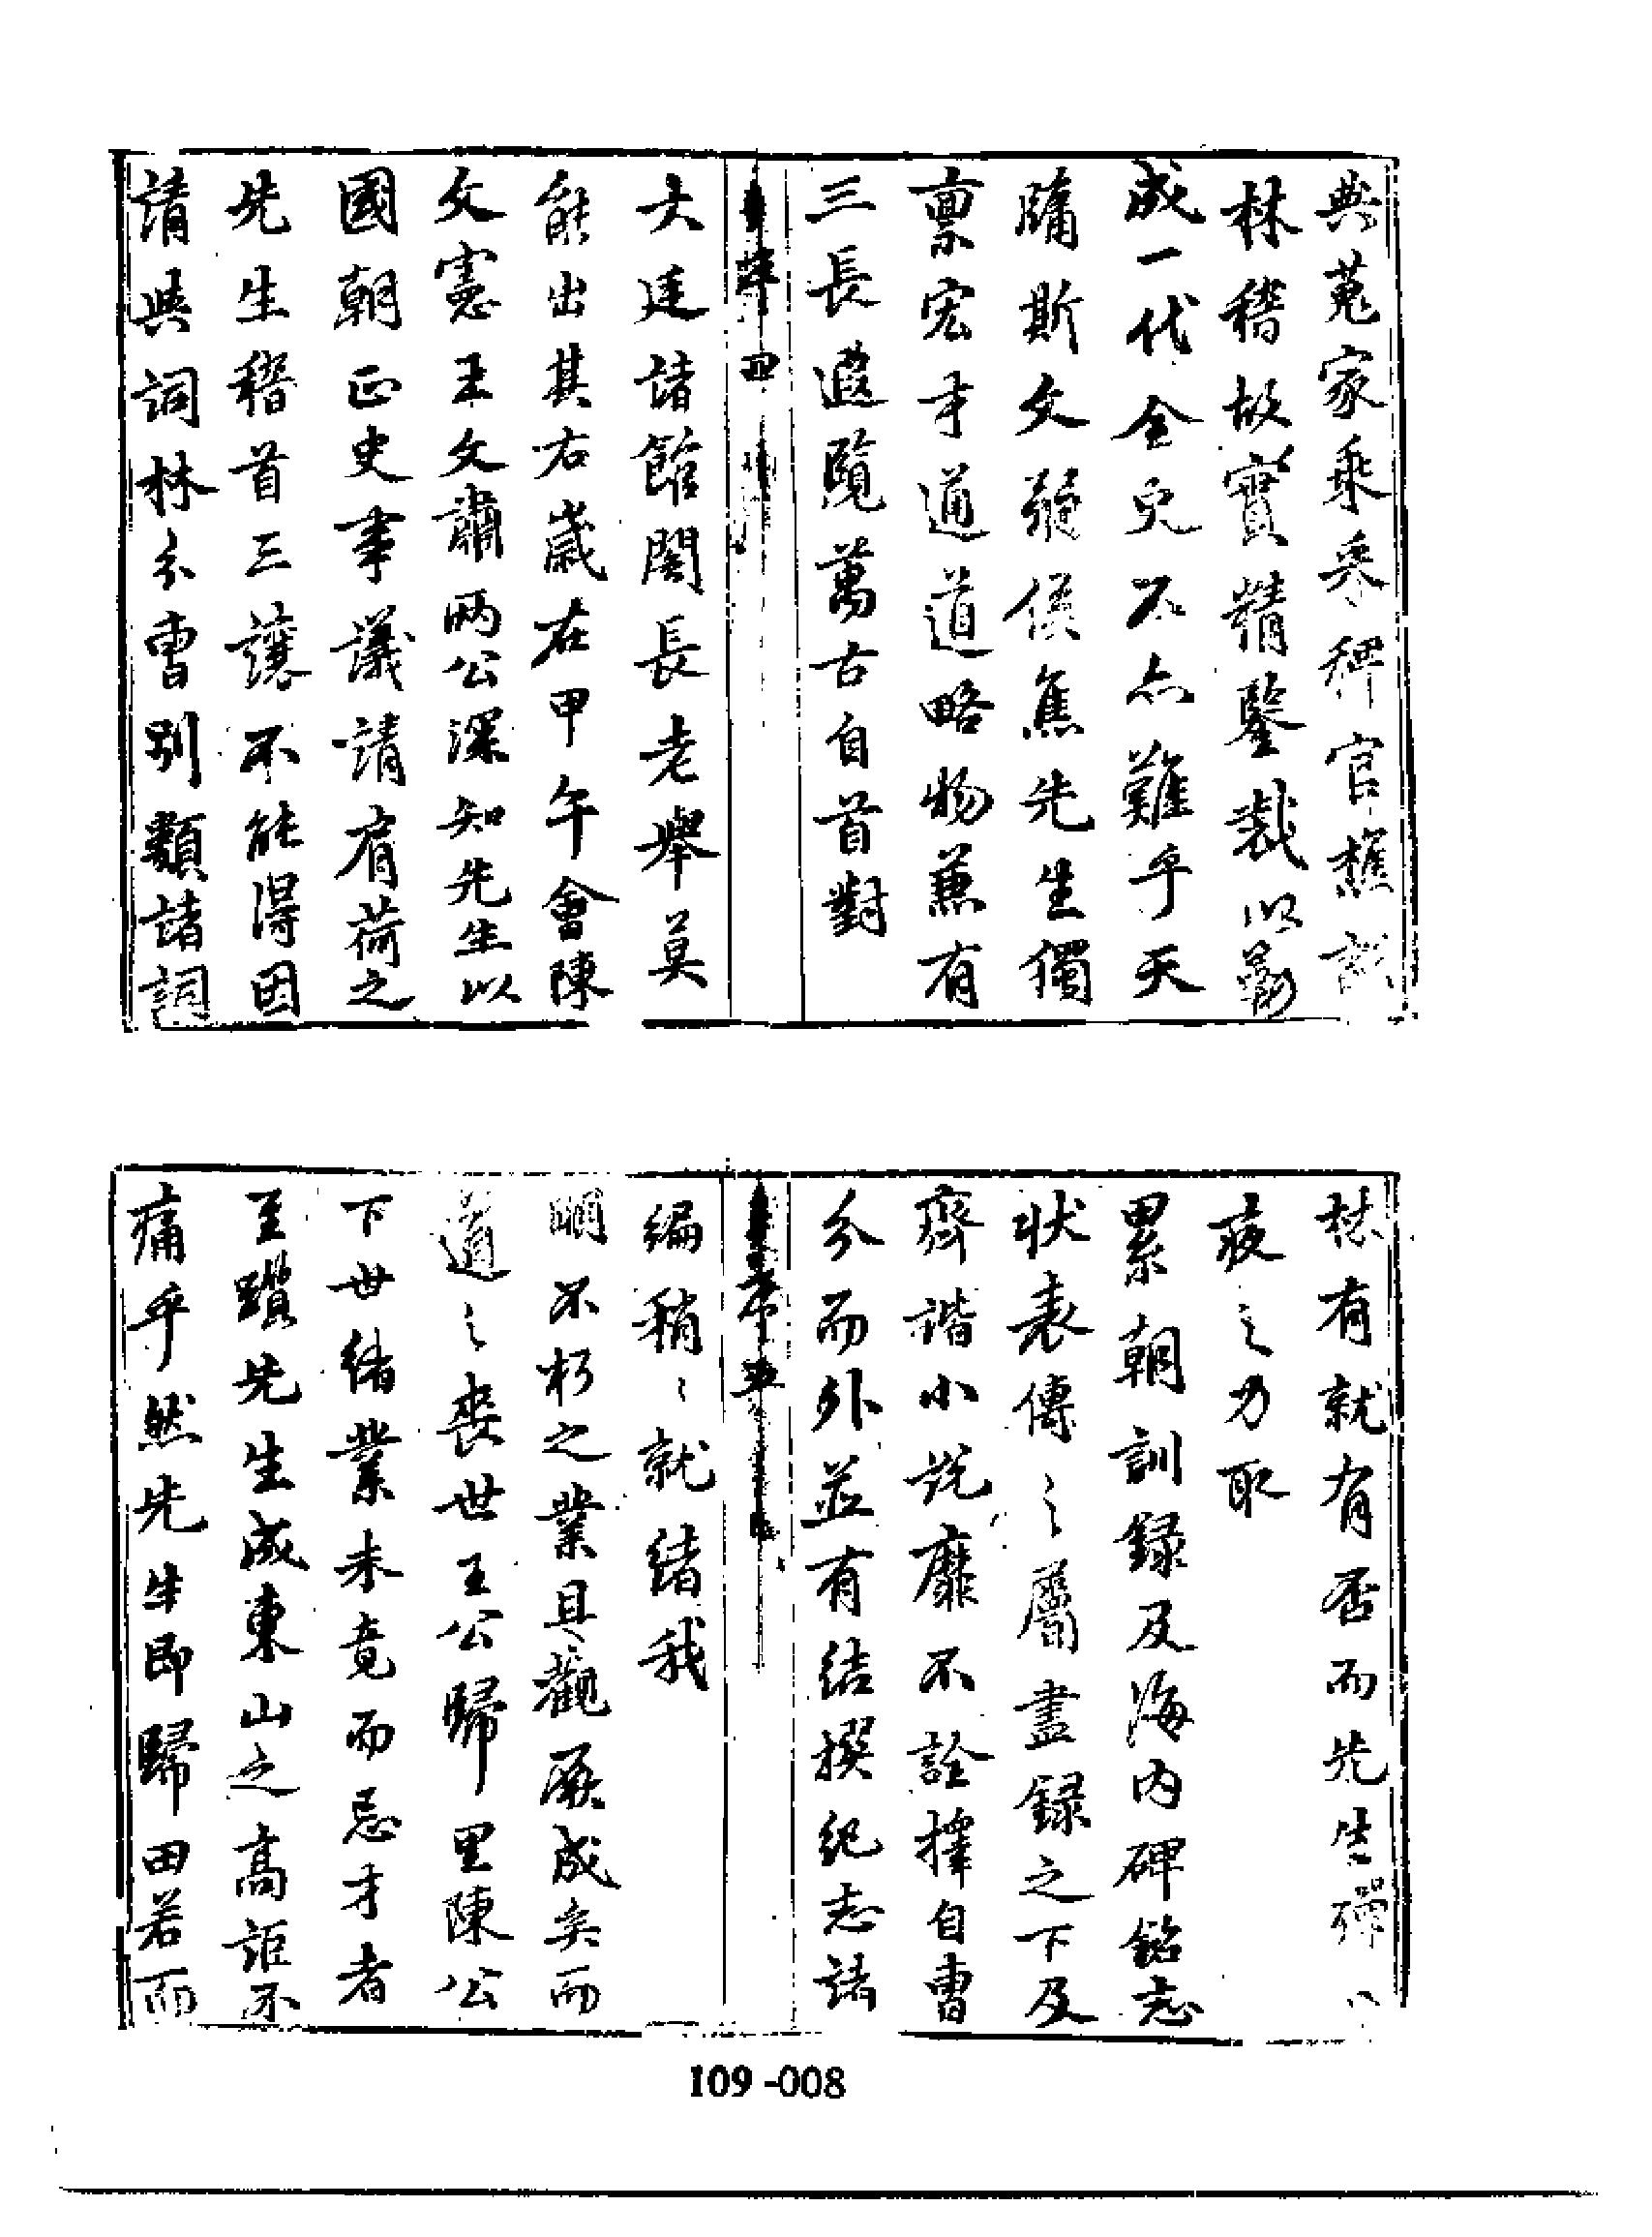 典蒐家乘采稗官樵說
林稽故實精鑒裁以勒
成一代全史不亦難乎天
牖斯文疑俟焦先生獨
禀宏才通道道略物蒹有
三長遐覽萬古自首對
序 四
大廷諸館閣長老舉莫
能出其右歲在甲午會陳
文憲王文肅兩公深知先生以
國朝正史事議請肩荷之
先生稽首三讓不能得因
請與詞林分曹別類諸詞
林有就有否而先生殫
夜之力取
累朝訓錄及海內碑銘志
狀表傳之屬盡錄之下及
齊諧小說靡不詮擇自曹
分而外並有結撰紀志諸
序 五
編稍稍就緒我
明不朽之業且觀厥成矣而
道之喪世王公歸里陳公
下世緒業未竟而忌才者
至躓先生成東山之高詎不
痛乎然先生即歸田若而
109-008